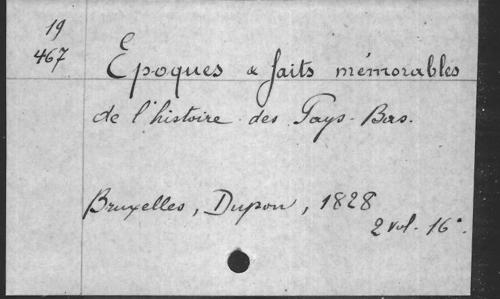 19
467
Epoques & faits mémorables
de l'histoire des Pays-Bas.
Bruxelles, Dupon, 1828
2 vol. 16°.